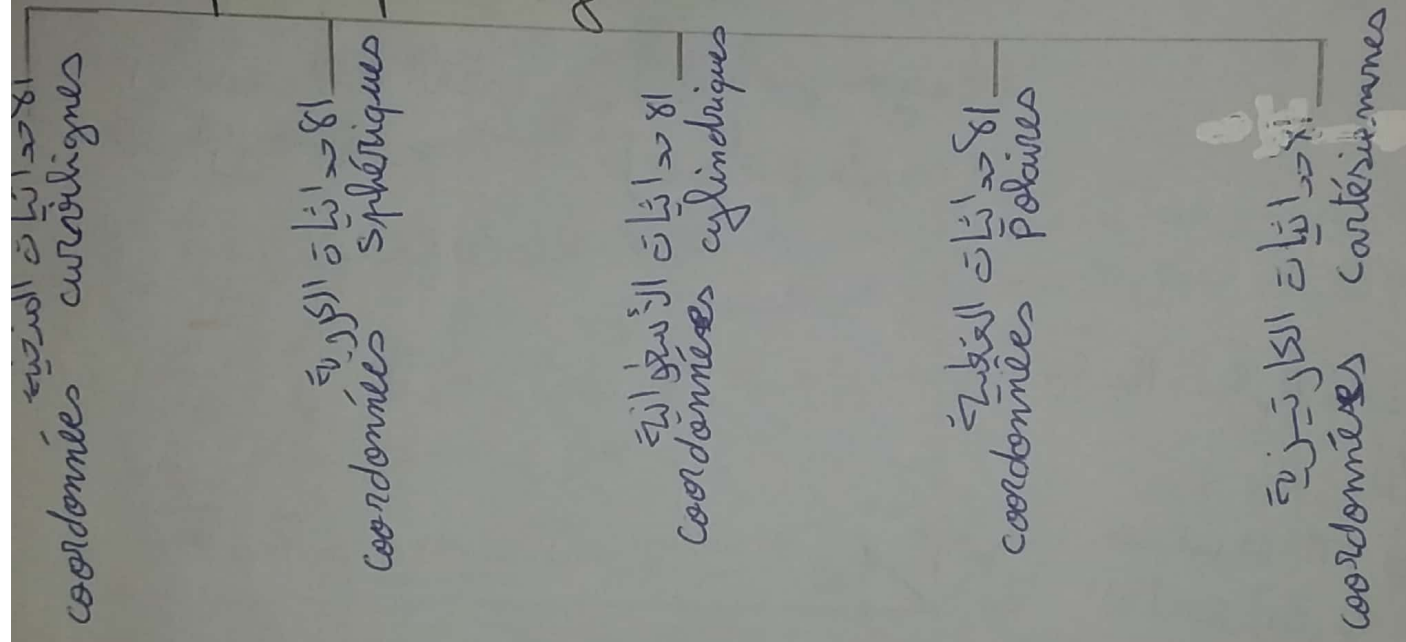 الاحداثيات المنحنية
coordonnées curvilignes
الاحداثيات الكروية
coordonnées sphériques
الاحداثيات الأسطوانية
coordonnées cylindriques
الاحداثيات القطبية
coordonnées Polaires
الاحداثيات الكارتيزية
coordonnées Cartésiennes